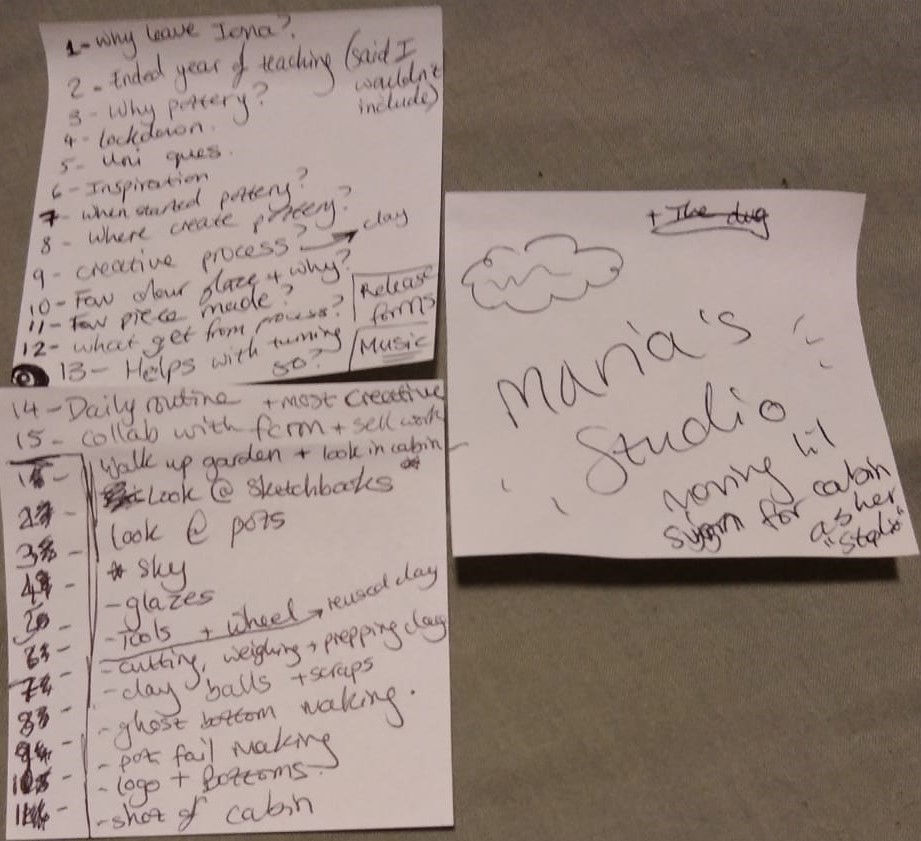 1 - Why leave Iona?
2 - Ended year of teaching (said I wouldn't include)
3 - Why pottery?
4 - lockdown.
5 - Uni ques.
6 - Inspiration
7 - when started pottery?
8 - Where create pottery?
9 - creative process? → clay
10 - Fav colour glaze + why?
11 - Fav piece made?
12 - what get from process?
13 - Helps with turning 50?
Release forms
Music
14 - Daily routine + most creative
15 - collab with farm + sell work
Walk up garden + look in cabin
Look @ Sketchbooks
look @ pots
* sky
- glazes
- Tools + wheel → reused clay
- cutting, weighing + prepping clay
- clay balls + scraps
- ghost bottom making.
- pot fail making
- logo + Bottoms
- shot of cabin
+ The dug
Maria's
Studio
lil
sign for cabin
as her